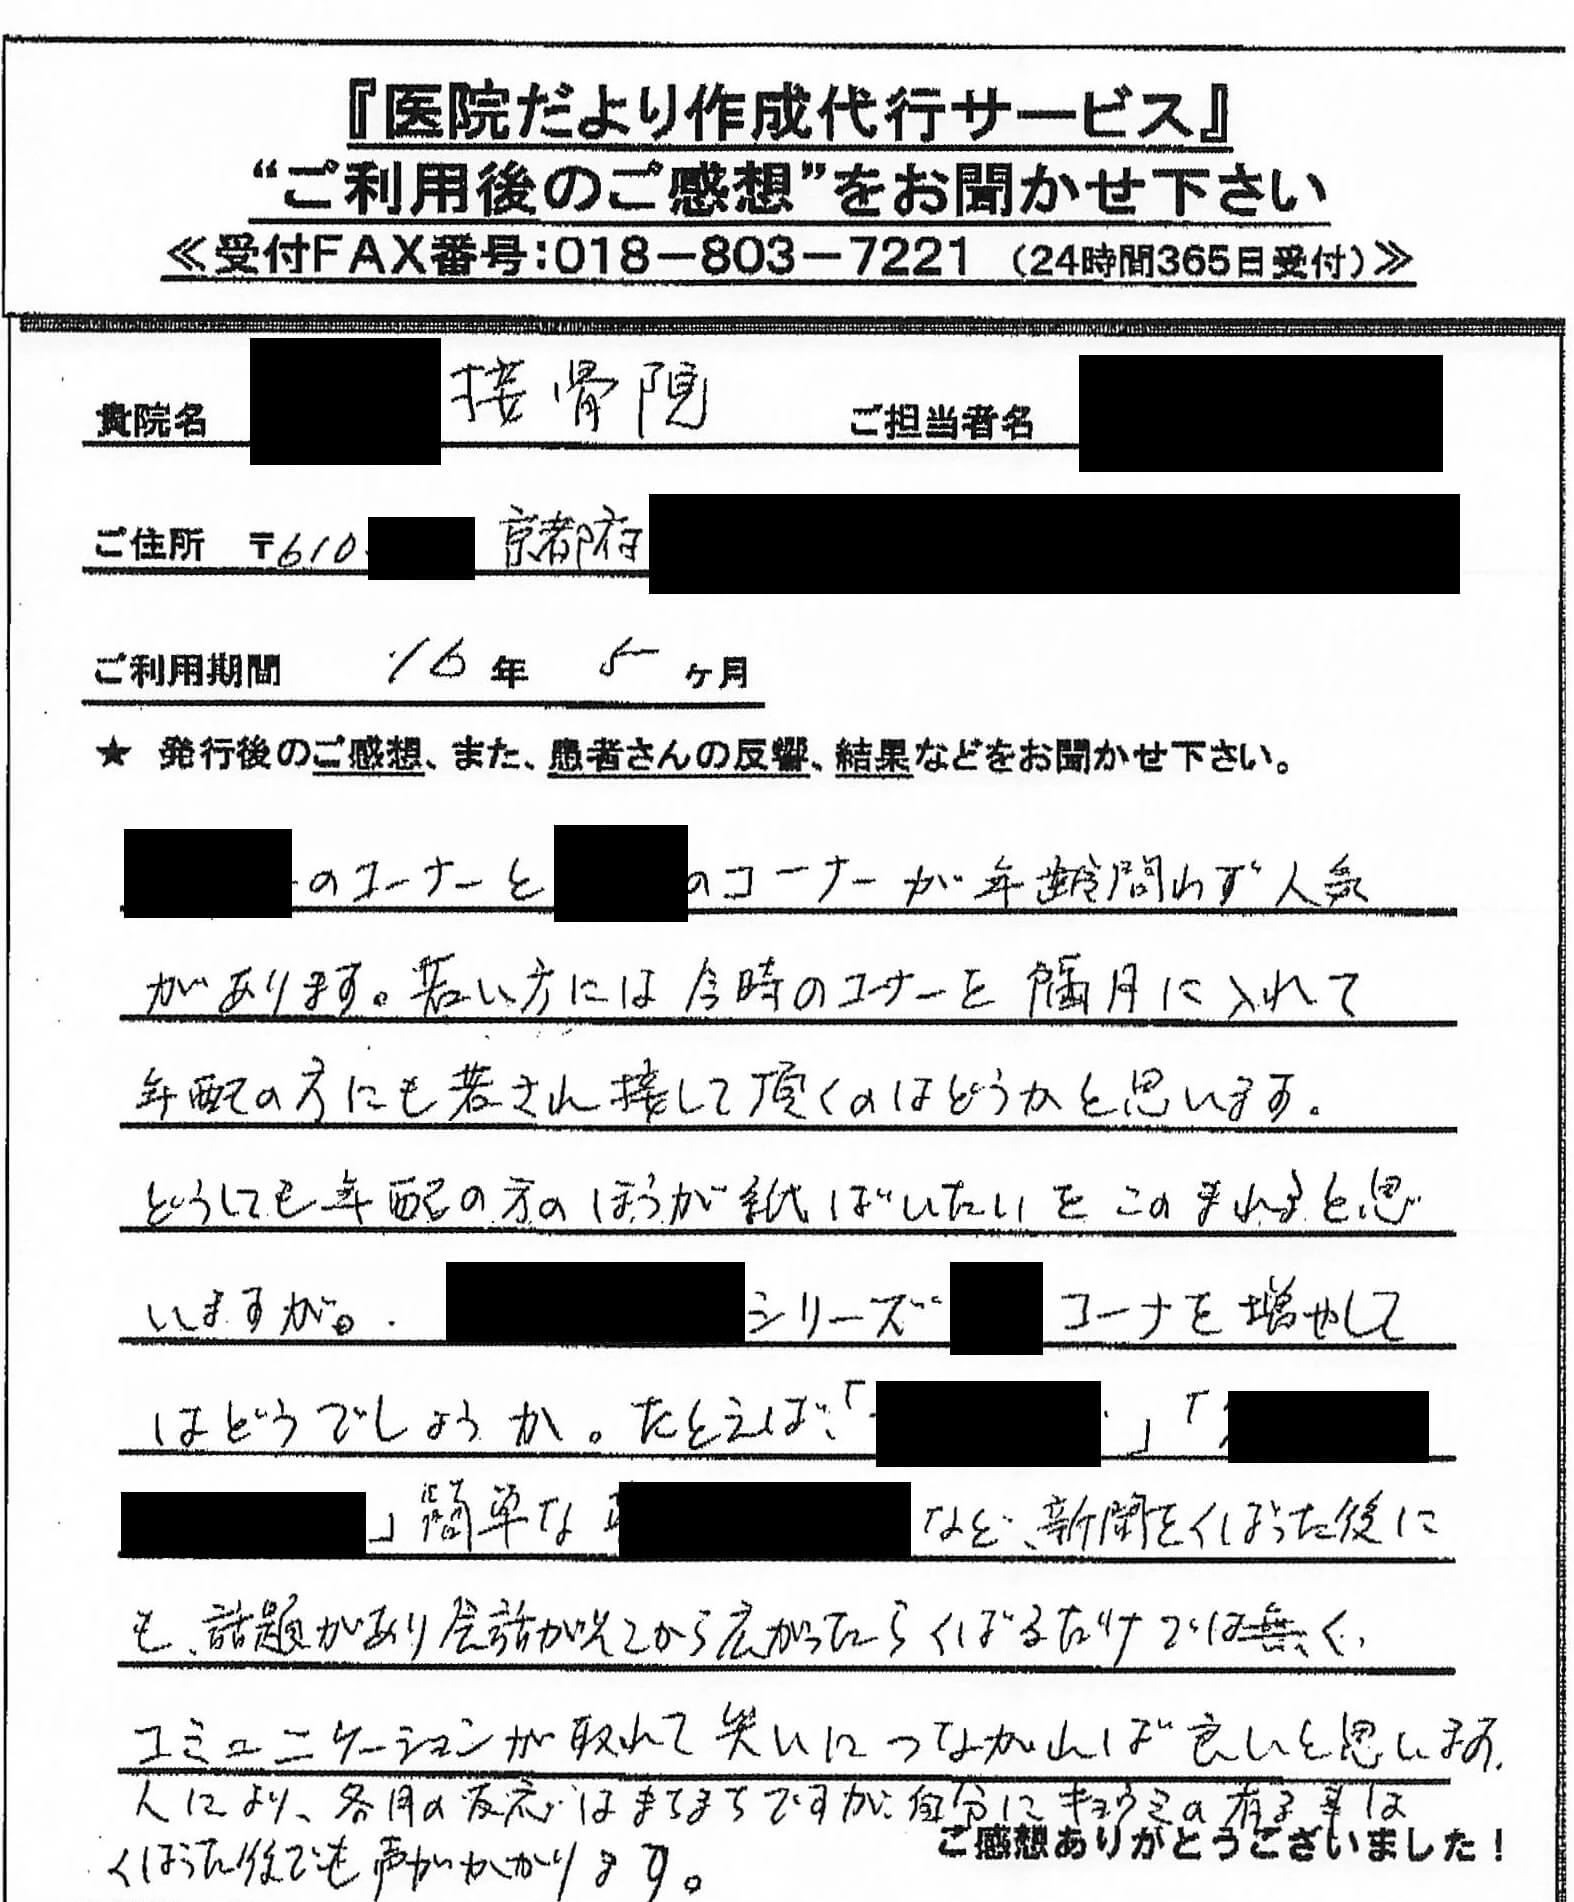 『医院だより作成代行サービス』
“ご利用後のご感想”をお聞かせ下さい
≪受付FAX番号：018－803－7221 （24時間365日受付）≫
貴院名 接骨院 ご担当者名
ご住所 〒610- 京都府
ご利用期間 16年 5ヶ月
★ 発行後のご感想、また、患者さんの反響、結果などをお聞かせ下さい。
のコーナーと のコーナーが年齢問わず人気
があります。若い方には今時のコーナーを隔月に入れて
年配の方にも若され接して頂くのはどうかと思います。
どうしても年配の方のほうが紙ばいたいをこのまれると思
いますが。 シリーズ コーナを増やして
はどうでしょうか。たとえば、「 」「
」簡単な など、新聞をくばった後に
も、話題があり会話がそこから広がったらくばるだけでは無く、
コミュニケーションが取れて笑いにつながれば良いと思います。
人により、各月の反応はまちまちですが、自分にキョウミの有る事は
くばった後でも声がかかります。
ご感想ありがとうございました！